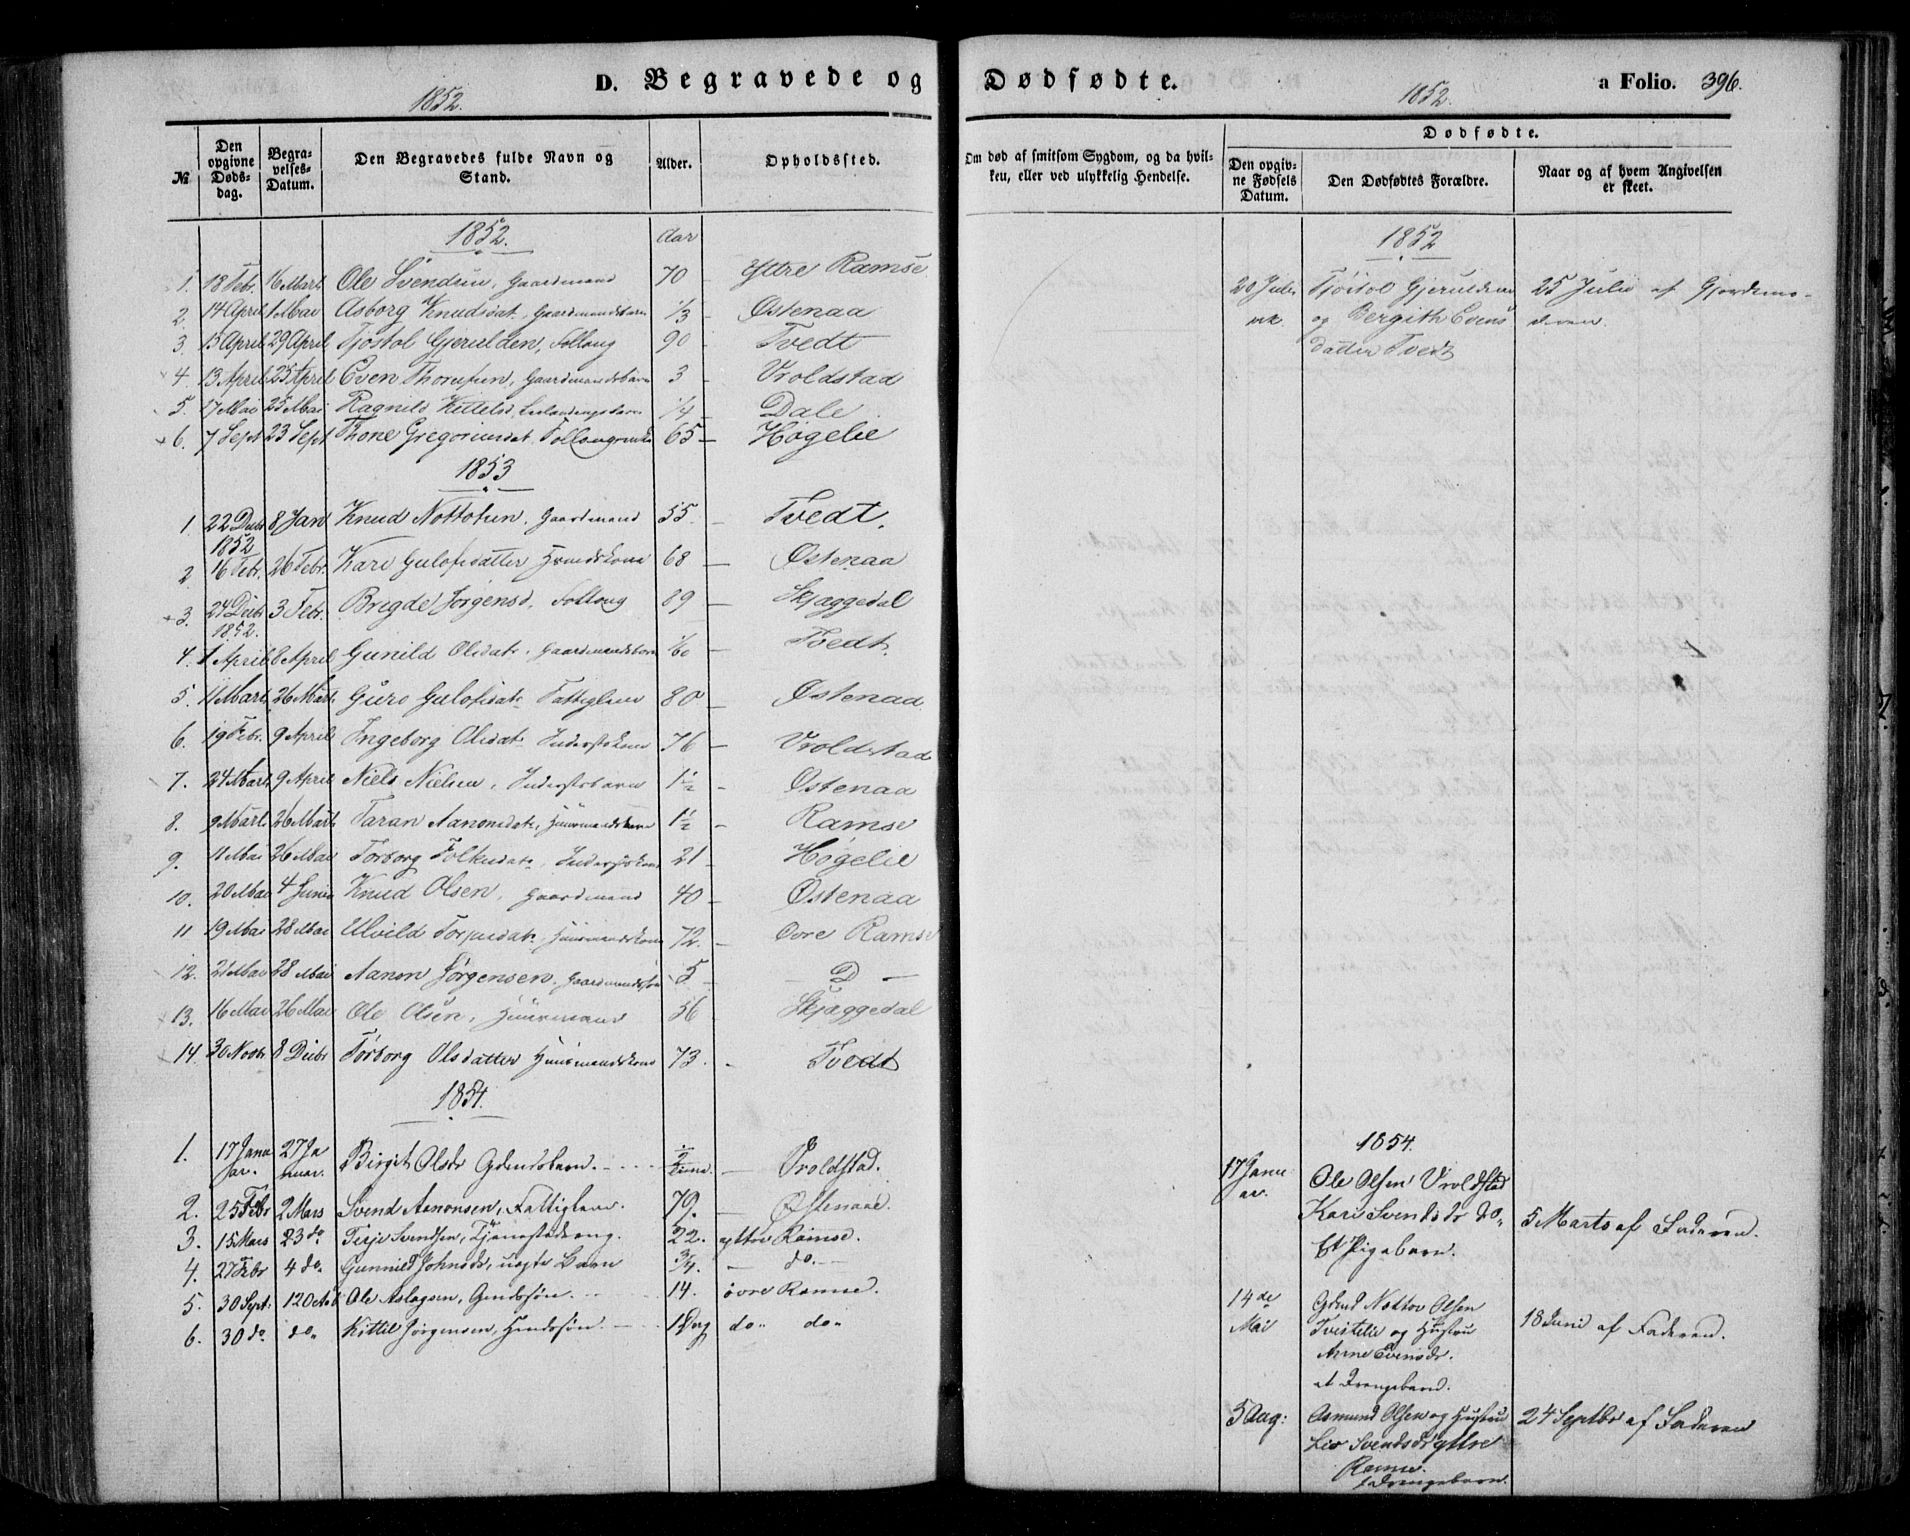 D. Begravede og
1852.
№ Den opgivne Dødsdag. Begravelses-Datum. Den Begravedes fulde Navn og Stand. Alder. Opholdssted.
1852. Aar
1. 18 Febr. 16 Mart. Ole Svendsen, Gaardmand 70 – Yttre Ramse
2. 14 April 1 Mai Asborg Knudsdat. Gaardmandsbarn 1/3 – Østenaa
3. 13 April 29 April Tjøstol Gjerulsen, Follaug 90 – Tvedt
4. 13 April 25 April Even Thomsen, Gaardmandsbarn 3 – Vroldstad
5. 17 Mai 25 Mai Ragnild Kittelsd. Leilendingsbarn 1/4 – Dale
6. 7 Sept 23 Sept Thone Gregoriusdat. 65 – Høgelie
1853
1. 22 Decbr 1852 8 Jan Knud Nottolsen, Gaardmand 55. Tvedt.
2 16 Febr. 26 Febr. Kari Gulofsdatter 68 – Østenaa
3. 24 Decbr 1852. 3 Febr. Brigde Jørgensd. Follaug 89 – Skjaggedal
4. 1 April 8 April Gunild Olsdat. Gaardmandsbarn – Tvedt.
5. 11 Marts 26 Mart. Guro Gulofsdat. Fattiglem 80 – Østenaa
6. 19 Febr. 9 April Ingeborg Olsdat. 76 – Vroldstad
7. 24 Mart. 9 April Niels Nielsen, Inderstbarn 1½ – Østenaa
8. 9 Mart. 26 Mart Taran Aanonsdat. Huusmandsbarn 1½ – Ramse
9. 11 Mai 26 Mai Torborg Folkusdat. 21 – Høgelie
10. 20 Mai 4 Juni Knud Olsen, Gaardmand 40 – Østenaa
11 19 Mai 28 Mai Ulvild Huusmandskone 72. – Øvre Ramse
12. 21 Mai 28 Mai Aanon Jørgensen, Gaardmandssøn 5 – – D –
13. 16 Mai 26 Mai Ole Olsen, Huusmand 56 Skjaggedal
14. 30 Novbr 8 Decbr Torborg Olsdatter Huusmandskone 73. – Tvedt
1854.
1. 17 Januar. 27 Januar. Birgit Olsdr – Vroldstad.
2. 25 Febr 2 Mars Svend Aanonsen, Fattiglem. 79. – Østenaae.
3. 15 Mars 23 do. Terje Svendsen, Tjenestedreng. 22. yttre Ramse.
4. 27 Febr 4 do. Gunnild Johnsdr, uægte Barn 3/4. – do. –
5. 30 Sept: 12 Ole Aslagsen, 14. øvre Ramse.
6. 30 do. do. Kittil Jørgensen, 1 Dag do. do.
Dødfødte.
1852. a Folio. 396.
Om død af smitsom Sygdom, og da hvilken, eller ved ulykkelig Hendelse.
Dødfødte.
Den opgivne Fødsels Datum. Den Dødfødtes Forældre. Naar og af hvem Angivelsen er skeet.
1852
20 Juli Tjøstol Gjerulsen 25 Julii af Gjordemo-
og Bergith Evens deren.
datter Tvedt
1854.
17 Januar. Ole Olsen Vroldstad
Kari Svendsdr do. 5 Marts af Faderen.
Et Pigebarn.
14de Mai Nottov Olsen
Tvistelie og Hustru 18 Juni af Faderen.
Anne Evensdr.
et Drengebarn.
5 Aug: Asmund Olsen og Hustru 24 Septbr af Faderen
Liv Svendsdr yttre
Ramse.
Drengebarn.